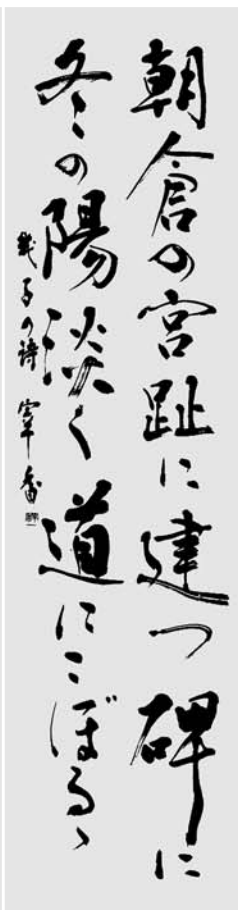 朝倉の宮趾に建つ碑に
冬の陽淡く道にこぼるゝ
子の詩